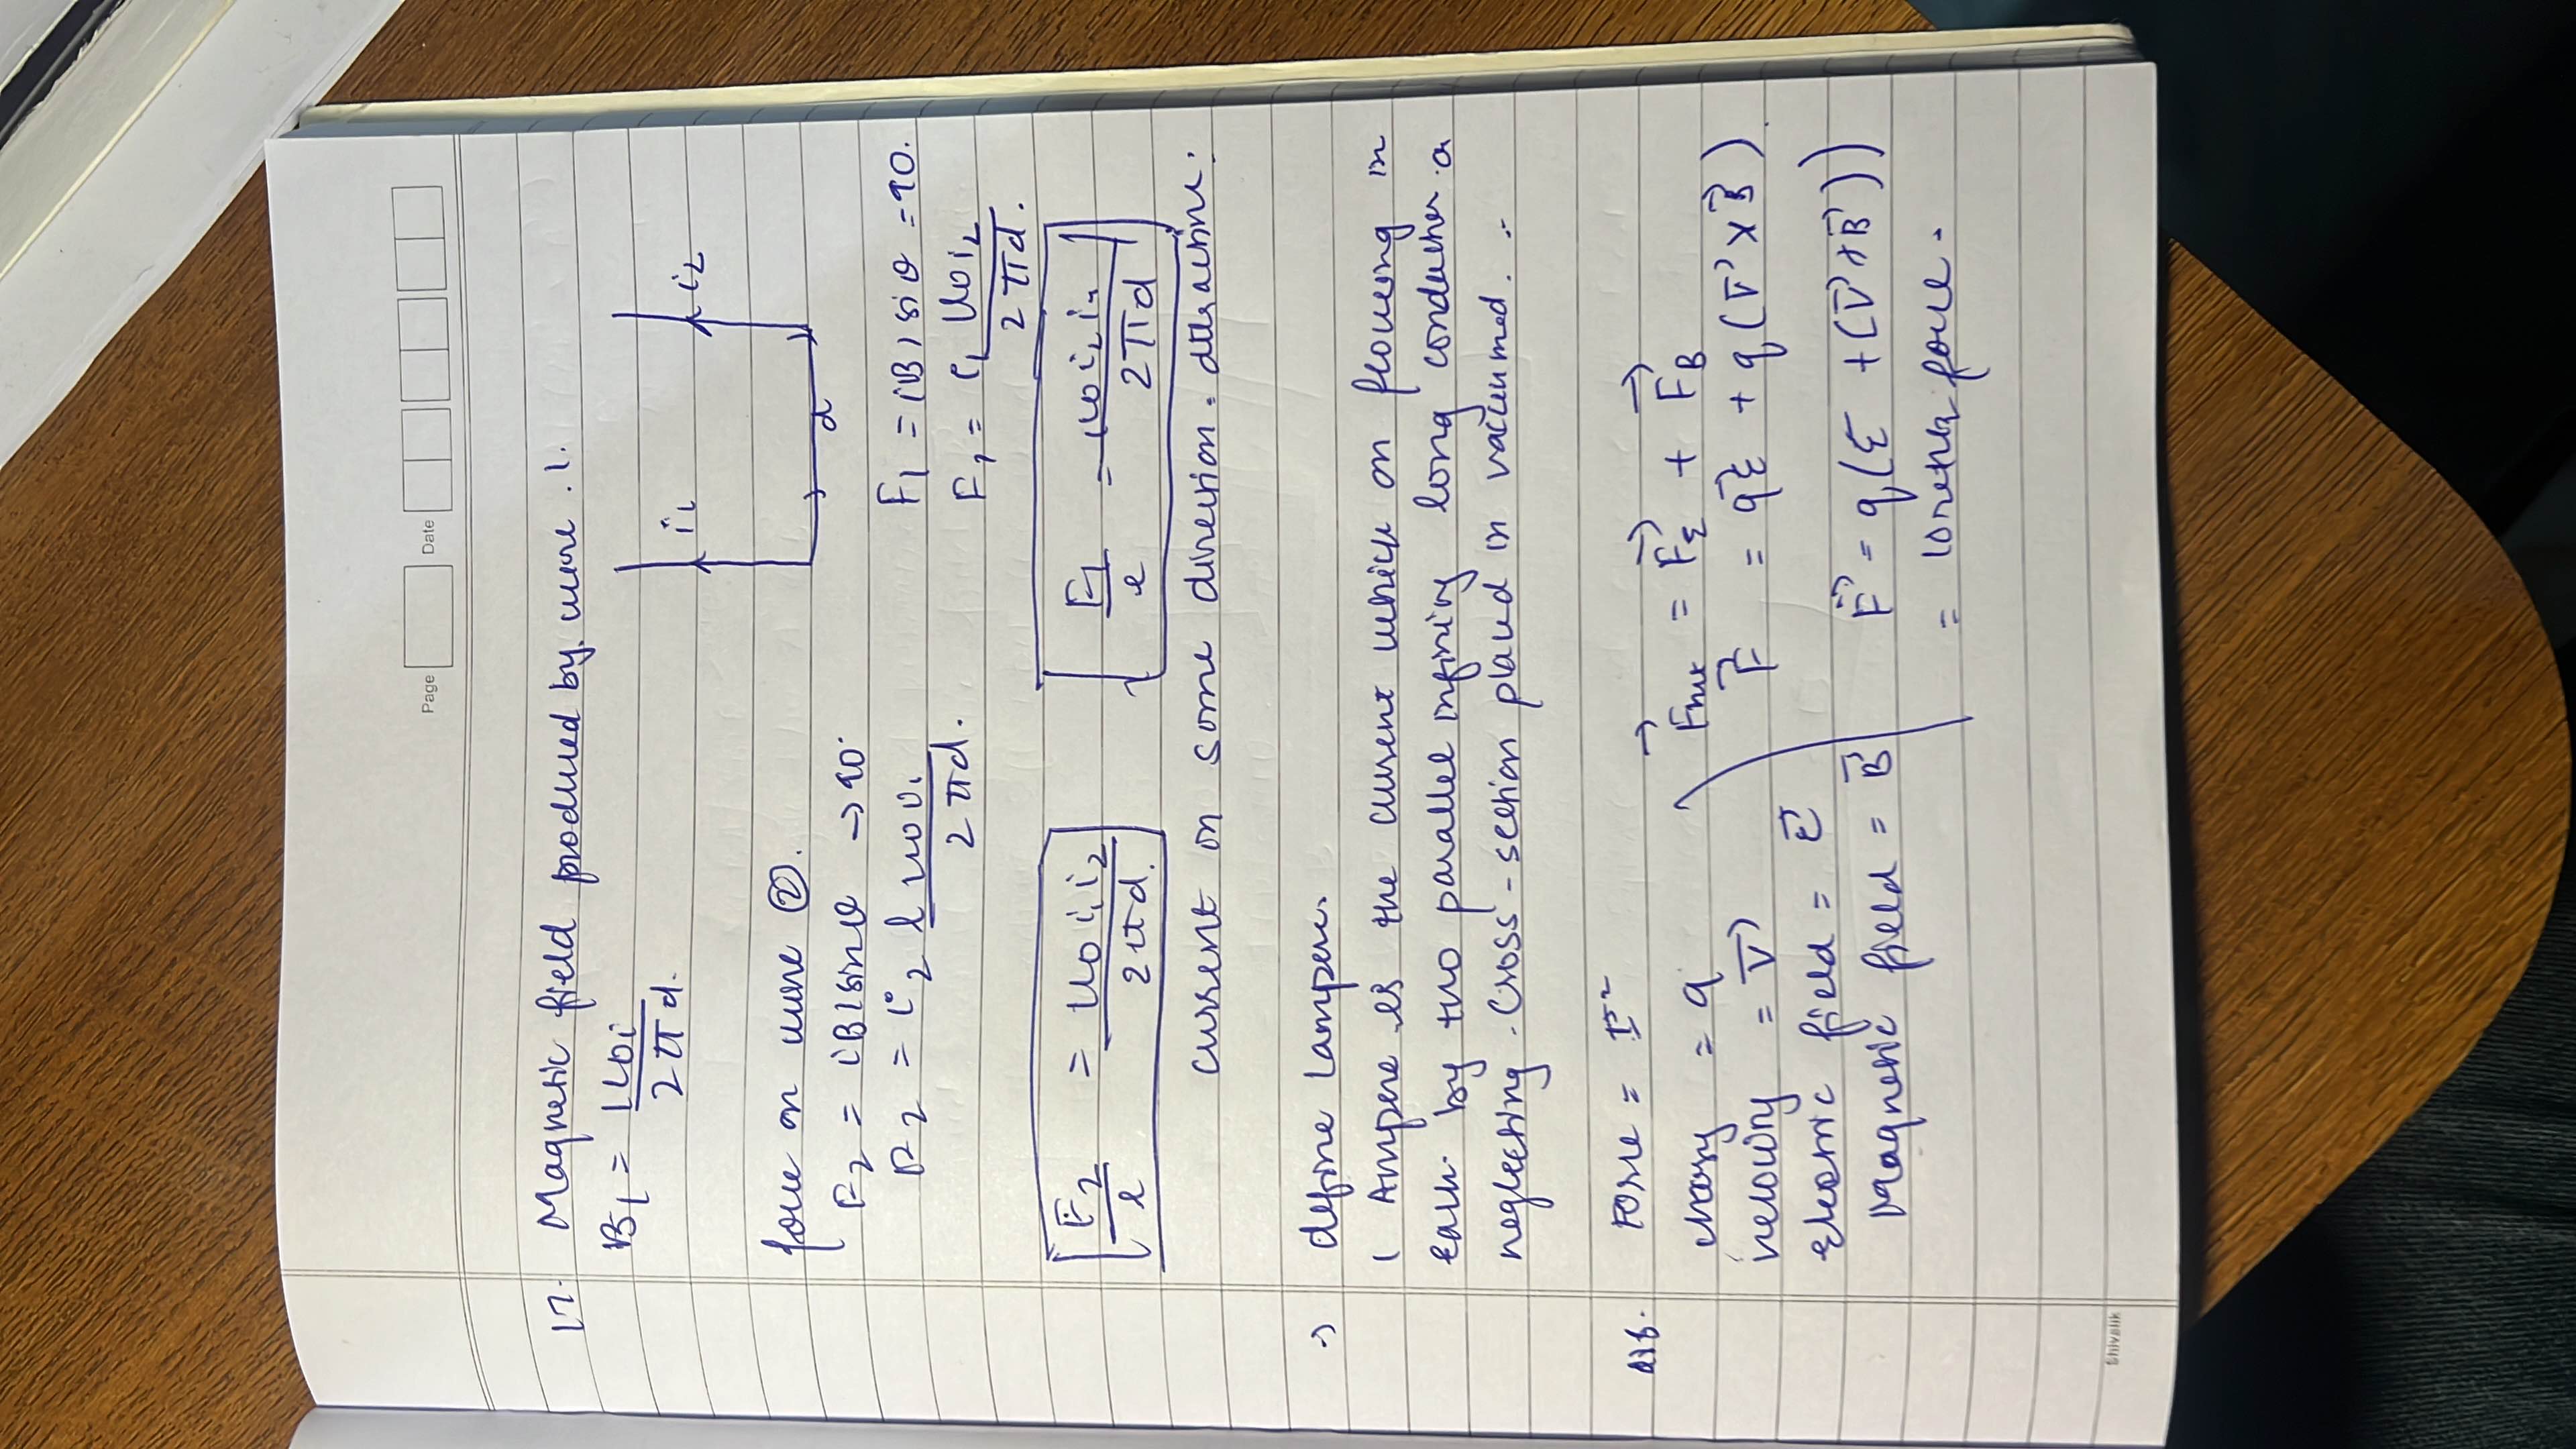 Page Date
17. Magnetic field produced by wire . 1.
B1 = μ0i / 2πd.
i1 i2
d
force on wire ②.
F2 = iBlsinθ → 90°
F2 = i2 l μ0i1 / 2πd.
F1 = iBlsinθ = 90.
F1 = i1 μ0i2 / 2πd.
F2 / l = μ0i1i2 / 2πd.
F1 / l = μ0i1i2 / 2πd
current on some direction = attraction.
→ define 1 ampere.
1 Ampere is the current which on flowing in
each by two parallel infinity long conductor a
neglecting . Cross - section placed in vaccumed .
charg = q
velocity = V
Electric field = E
Magnetic field = B
Fnet = FE + FB
F = qE + q (V × B)
F = q(E + (V × B))
= lorentz force .
Shivalik